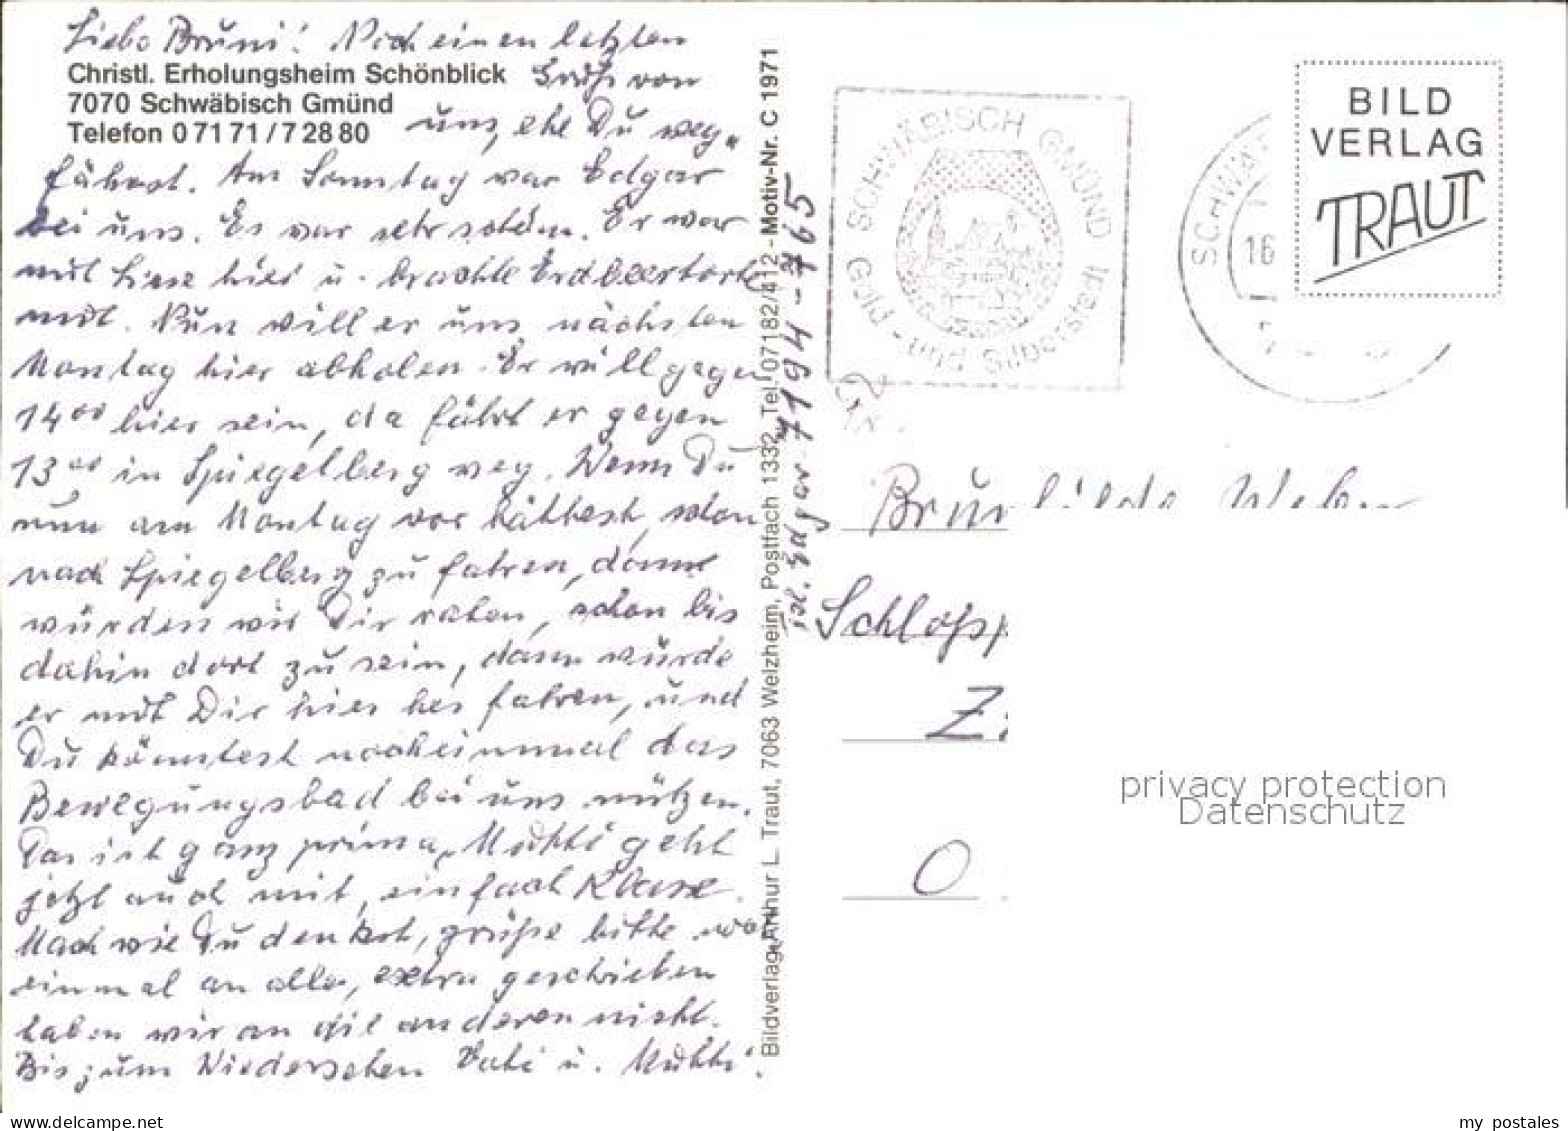 Liebe Bruni! Noch einen letzten
Christl. Erholungsheim Schönblick
Gruß von
7070 Schwäbisch Gmünd
Telefon 0 71 71 / 7 28 80
uns, ehe Du weg-
fährst. Am Sonntag war Edgar
bei uns. Es war sehr schön. Er war
mit Liese hier u. brachte Erdbeertorte
mit. Nun will er uns nächsten
Montag hier abholen. Er will gegen
14⁰⁰ hier sein, da fährt er gegen
13⁰⁰ in Spiegelberg weg. Wenn Du
nun am Montag vor hättest, schon
nach Spiegelberg zu fahren, dann
würden wir Dir raten, schon bis
dahin dort zu sein, dann würde
er mit Dir hier her fahren, und
Du könntest nocheinmal das
Bewegungsbad bei uns nützen.
Das ist ganz prima, Mutti geht
jetzt auch mit, einfach Klasse.
Mach wie Du denkst, grüße bitte noch
einmal an alle, extra geschrieben
haben wir an die anderen nicht.
Bis zum Wiedersehen Vati u. Mutti.
Bildverlag Arthur L. Traut, 7063 Welzheim, Postfach 1332, Tel. 07182/412 - Motiv-Nr. C 1971
Tel. Edgar 7194-765
SCHWÄBISCH GMÜND
Gold- und Silberstadt
SCHWÄ
16
BILD
VERLAG
TRAUT
Brunhilde Weber
Schloßp
Z
O
privacy protection
Datenschutz
www.delcampe.net
my_postales